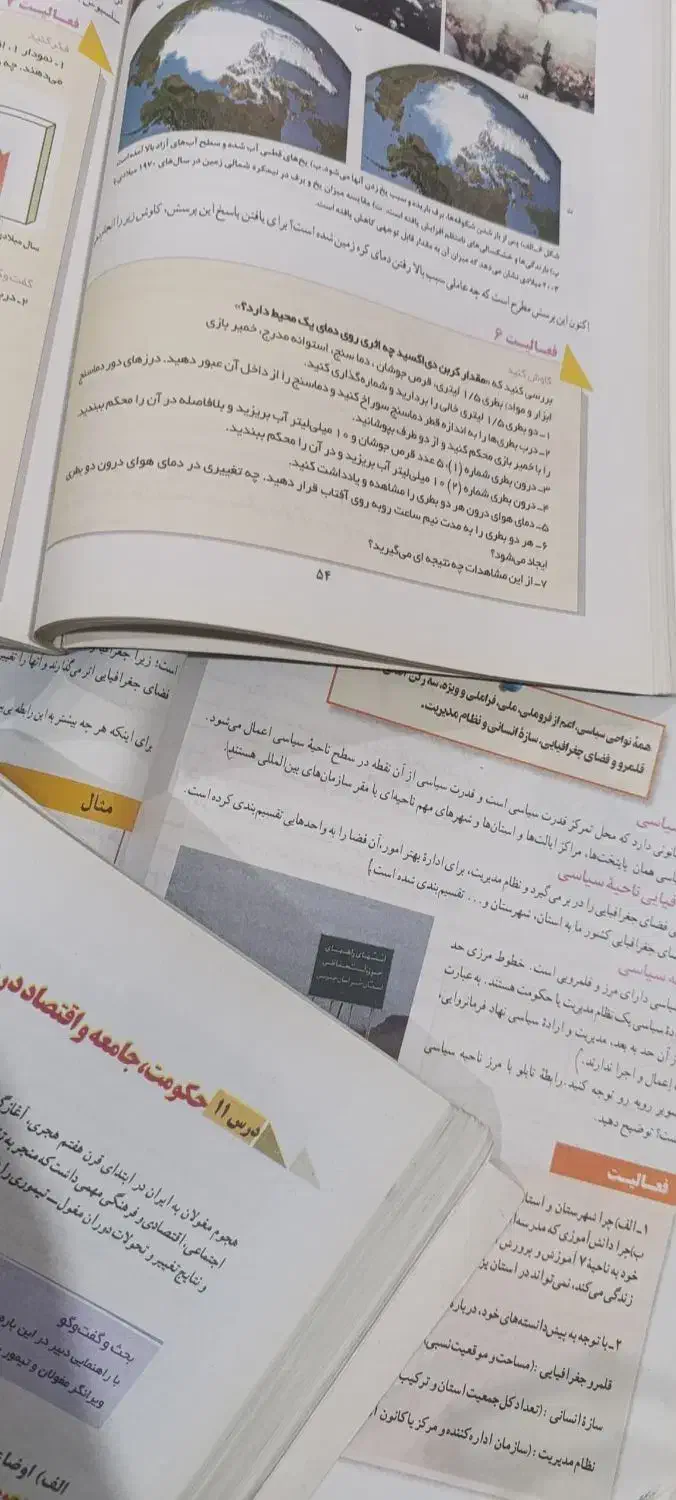 فعالیت
فکر کنید
۱ـ نمودار
می‌دهند. چه
سال میلادی
۲ـ در
الف
ب
شکل ۶ـ الف) پس از باز شدن شکوفه‌ها، برف باریده و سبب یخ زدن آنها می‌شود. ب) یخ‌های قطبی آب شده و سطح آب‌های آزاد بالا آمده است
پ) بارندگی‌ها و خشکسالی‌های نامنظم افزایش یافته است. ت) مقایسه میزان یخ و برف در نیمکره شمالی زمین در سال‌های ۱۹۷۰ میلادی
۲۰۰۳ میلادی نشان می‌دهد که میزان آن به مقدار قابل توجهی کاهش یافته است.
اکنون این پرسش مطرح است که چه عاملی سبب بالا رفتن دمای کره زمین شده است؟ برای یافتن پاسخ این پرسش، کاوش زیر را انجام
فعالیت ۶
کاوش کنید
بررسی کنید که «مقدار کربن دی‌اکسید چه اثری روی دمای یک محیط دارد؟»
ابزار و مواد: بطری ۱/۵ لیتری، قرص جوشان، دماسنج، استوانه مدرج، خمیر بازی
۱ـ دو بطری ۱/۵ لیتری خالی را بردارید و شماره‌گذاری کنید.
۲ـ درب بطری‌ها را به اندازه قطر دماسنج سوراخ کنید و دماسنج را از داخل آن عبور دهید. درزهای دور دماسنج
را با خمیر بازی محکم کنید و از دو طرف بپوشانید.
۳ـ درون بطری شماره (۱)، ۵ عدد قرص جوشان و ۱۰ میلی‌لیتر آب بریزید و بلافاصله در آن را محکم ببندید
۴ـ درون بطری شماره (۲) ۱۰ میلی‌لیتر آب بریزید و در آن را محکم ببندید.
۵ـ دمای هوای درون هر دو بطری را مشاهده و یادداشت کنید.
۶ـ هر دو بطری را به مدت نیم ساعت رو به روی آفتاب قرار دهید. چه تغییری در دمای هوای درون دو بطری
ایجاد می‌شود؟
۷ـ از این مشاهدات چه نتیجه ای می‌گیرید؟
۵۴
است؛ زیرا
فضای جغرافیایی اثر می‌گذارند و آنها را
برای اینکه هر چه بیشتر به این رابطه
مثال
همهٔ نواحی سیاسی، اعم از فروملی، ملی، فراملی و ویژه، سه رکن
قلمرو و فضای جغرافیایی، سازهٔ انسانی و نظام مدیریت.
سیاسی
دارد که محل تمرکز قدرت سیاسی است و قدرت سیاسی از آن نقطه در سطح ناحیهٔ سیاسی اعمال می‌شود.
همان پایتخت‌ها، مراکز ایالت‌ها و استان‌ها و شهرهای مهم ناحیه‌ای یا مقر سازمان‌های بین‌المللی هستند).
ناحیهٔ سیاسی
فضای جغرافیایی را در بر می‌گیرد و نظام مدیریت، برای ادارهٔ بهتر امور، آن فضا را به واحدهایی تقسیم‌بندی کرده است.
جغرافیایی کشور ما به استان، شهرستان و... تقسیم‌بندی شده است.)
سیاسی
سیاسی دارای مرز و قلمرویی است. خطوط مرزی حد
سیاسی یک نظام مدیریت یا حکومت هستند. به عبارت
از آن حد به بعد، مدیریت و ارادهٔ سیاسی نهاد فرمانروایی،
اعمال و اجرا ندارند.)
رو به رو توجه کنید. رابطهٔ تابلو با مرز ناحیه سیاسی
توضیح دهید.
انتهای راهنمای
حوزه استحفاظی
استان خراسان جنوبی
فعالیت
۱ـ الف) چرا شهرستان و
ب) چرا دانش‌آموزی که
خود به ناحیهٔ ۷ آموزش و پرورش
زندگی می‌کند، نمی‌تواند در استان
۲ـ با توجه به پیش‌دانسته‌های خود، درباره
قلمرو جغرافیایی : (مساحت و موقعیت نسبی
سازهٔ انسانی : (تعداد کل جمعیت استان و ترکیب
نظام مدیریت : (سازمان اداره‌کننده و مرکز یا کانون
درس ۱۱ حکومت، جامعه و اقتصاد در
هجوم مغولان به ایران در ابتدای قرن هفتم هجری،
اجتماعی، اقتصادی و فرهنگی مهمی داشت که منجر به
و نتایج تغییر و تحولات دوران مغول ـ تیموری را
بحث و گفت‌وگو
با راهنمایی دبیر در این باره
ویرانگر مغولان و تیمور
الف) اوضاع